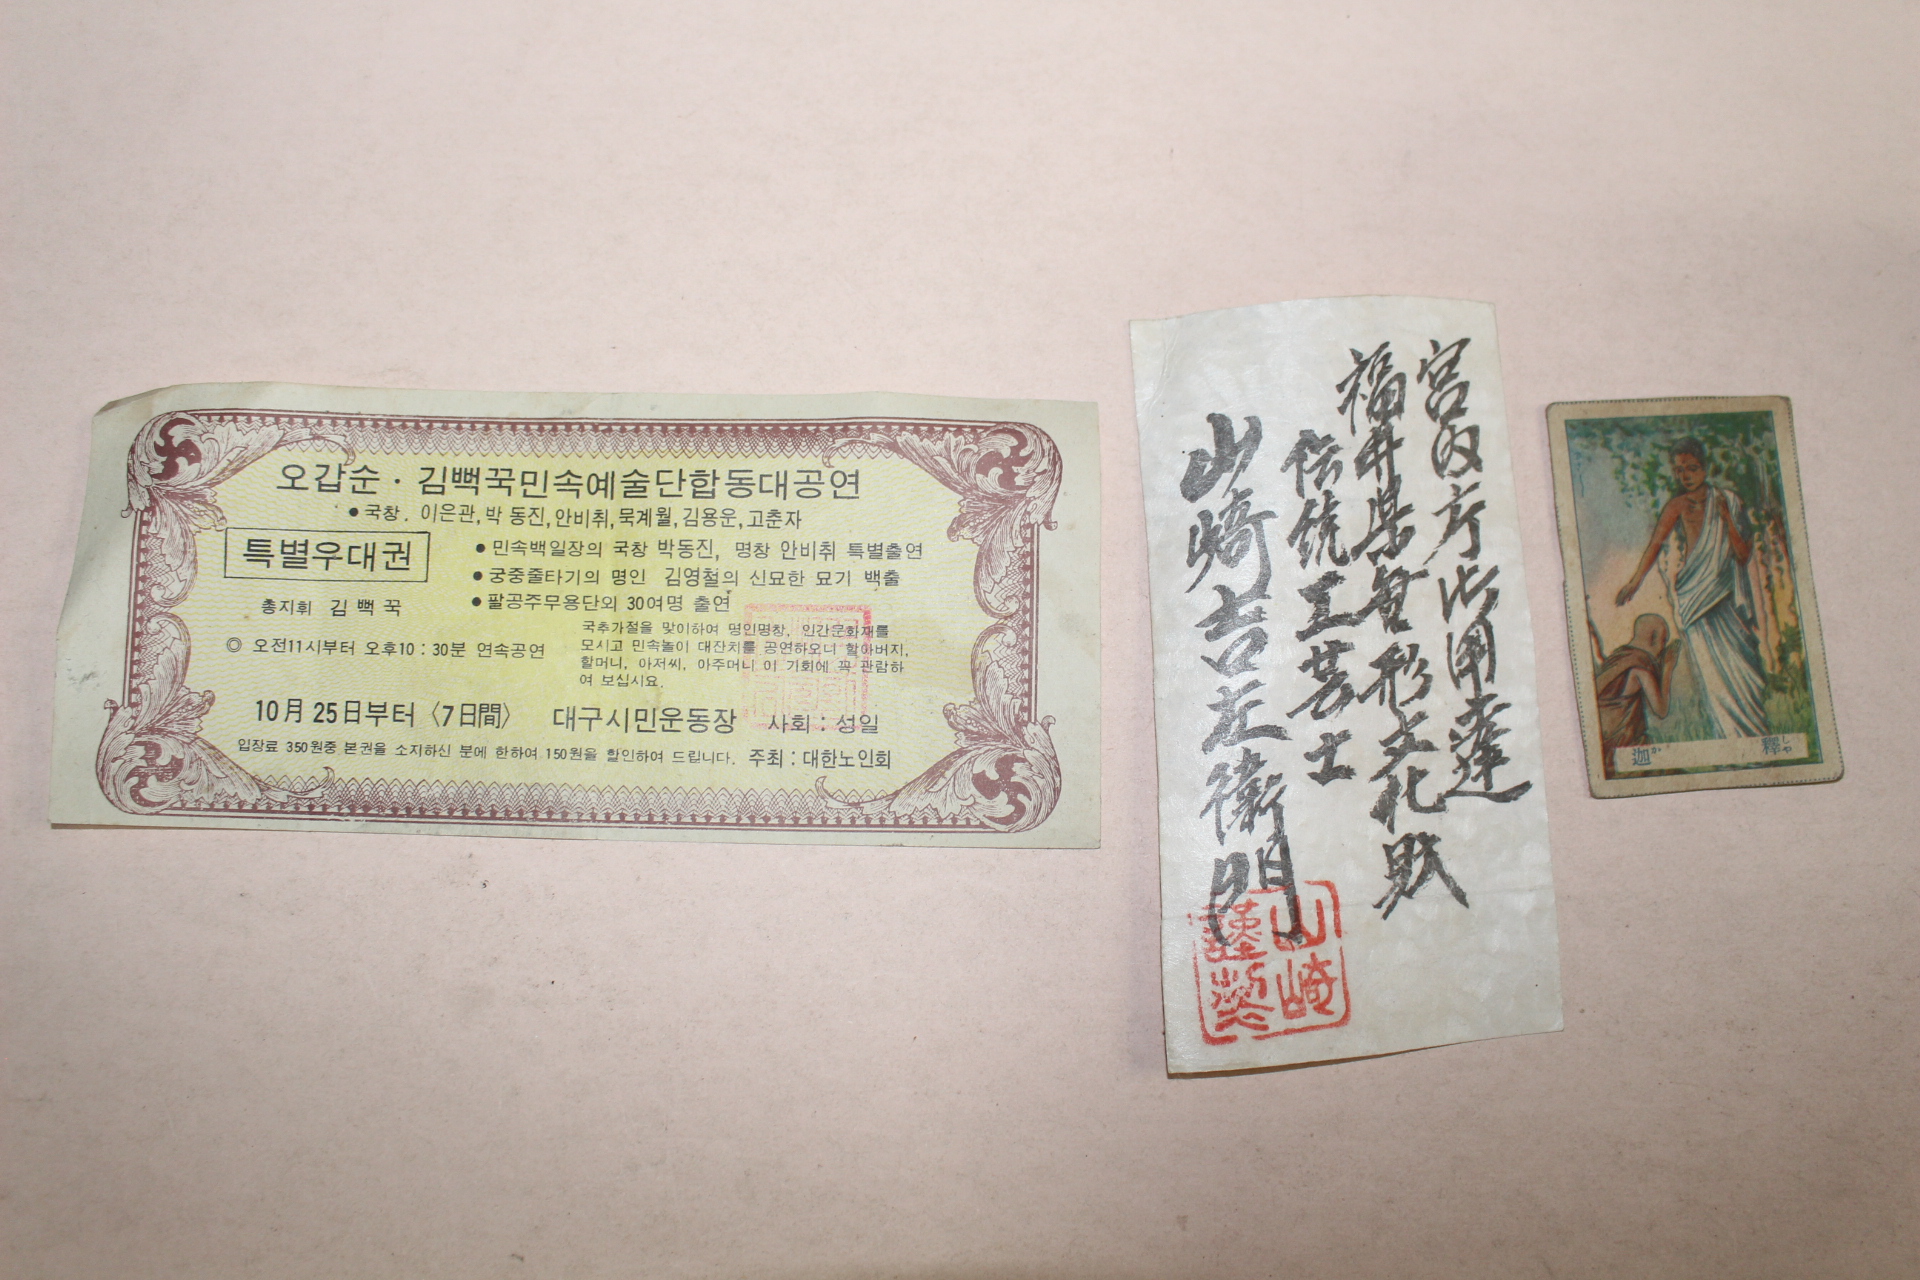 오갑순 · 김뻑꾹민속예술단합동대공연
● 국창. 이은관, 박동진, 안비취, 묵계월, 김용운, 고춘자
특별우대권
● 민속백일장의 국창 박동진, 명창 안비취 특별출연
● 궁중줄타기의 명인 김영철의 신묘한 묘기 백출
● 팔공주무용단외 30여명 출연
총지휘 김뻑꾹
◎ 오전11시부터 오후10 : 30분 연속공연
국추가절을 맞이하여 명인명창, 인간문화재를
모시고 민속놀이 대잔치를 공연하오니 할아버지,
할머니, 아저씨, 아주머니 이 기회에 꼭 관람하
여 보십시요.
10月 25日부터 〈7日間〉 대구시민운동장 사회 : 성일
입장료 350원중 본권을 소지하신 분에 한하여 150원을 할인하여 드립니다. 주최 : 대한노인회
宮内庁御用達
福井県無形文化財
伝統工芸士
山崎吉左衛門
山崎
謹製
釋しや迦か